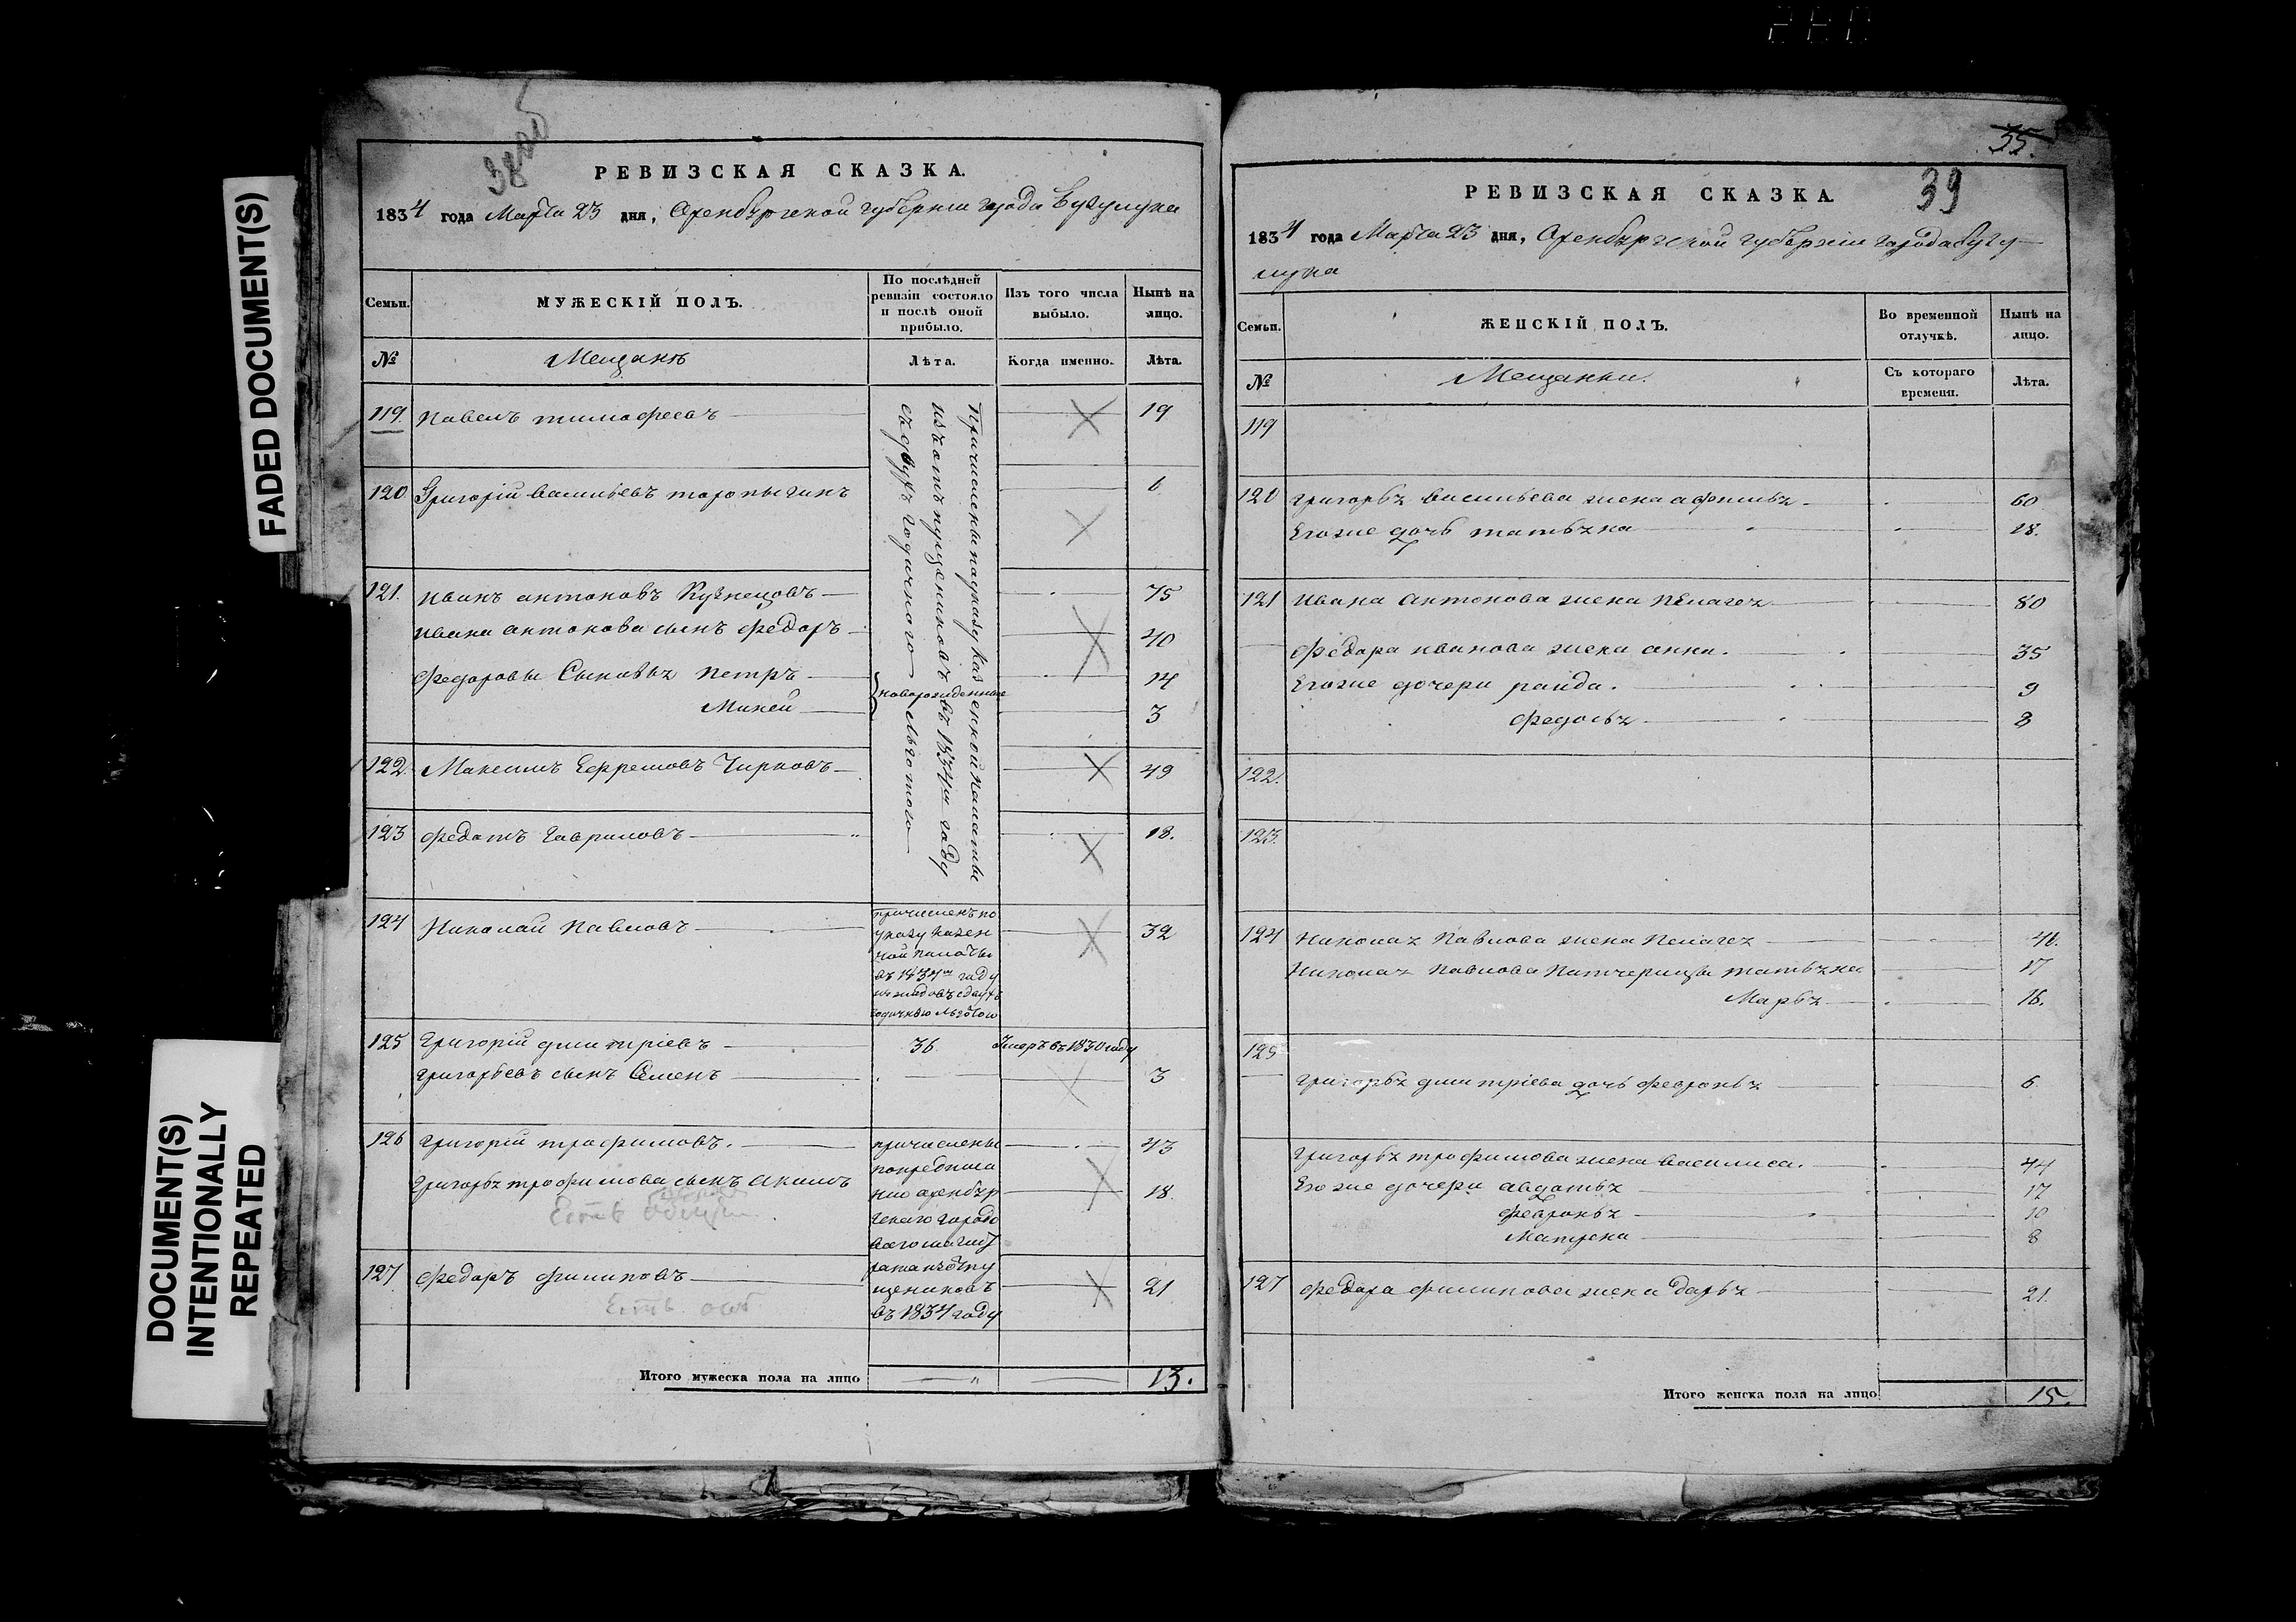 FADED DOCUMENT(S)
DOCUMENT(S)
INTENTIONALLY
REPEATED
38 об
РЕВИЗСКАЯ СКАЗКА.
1834 года Марта 23 дня, Оренбургской губернии города Бугульмы
Семьи.
МУЖЕСКІЙ ПОЛЪ.
По послѣдней
ревизіи состояло
и послѣ оной
прибыло.
Изъ того числа
выбыло.
Нынѣ на
лицо.
№
Мещанъ
Лѣта.
Когда именно.
Лѣта.
119. Павелъ тимофеевъ 19
120 Григорій васильевъ торопыгинъ
121. иванъ антоновъ Кузнецовъ 75
ивана антонова сынъ федоръ 40
федоровы Сыновья петръ 14
новорожденные
Михей 3
Причислены по указу казенной палаты
изъ отпущенниковъ въ 1834м году
съ двухъ годичною льготою
122. Максимъ Ефремовъ Чирковъ 49
123 федотъ гавриловъ 18.
124 Николай павловъ 32
причисленъ по
указу казен
ной палаты
въ 1834м году
годичною льготою
125 Григорій дмитріевъ 36 Умеръ въ 1830 году
григорьевъ сынъ Семенъ 3
126 григорій трофимовъ. 43
григорья трофимова сынъ акимъ 18.
причислены
по предписа
нію оренбур
гскаго городо
ваго магист
рата изъ отпу
щениковъ
въ 1834 году
Есть
127 федоръ филиповъ 21
Есть
Итого мужеска пола на лицо 13.
35.
39
РЕВИЗСКАЯ СКАЗКА.
1834 года Марта 23 дня, Оренбургской губерніи города бугу
Семьи.
ЖЕНСКІЙ ПОЛЪ.
Во временной
отлучкѣ.
Нынѣ на
лицо.
№
Мещанки.
Съ котораго
времени.
Лѣта.
119
120 григорья васильева жена афимья 60
Егоже дочь татьяна 18.
121 ивана антонова жена пелагея 80
федора иванова жена анна. 35
Егоже дочери раида. 9
федосья 8
122.
123.
124 николая павлова жена пелагея 41.
николая павлова патчерицы татьяна 17
Марья 16.
125
григорья дмитріева дочь февронья 6
григорья трофимова жена василиса. 44
Егоже дочери авдотья 17
февронья 10
Матрена 8
127 федора филипова жена дарья 21.
Итого женска пола на лицо 15.